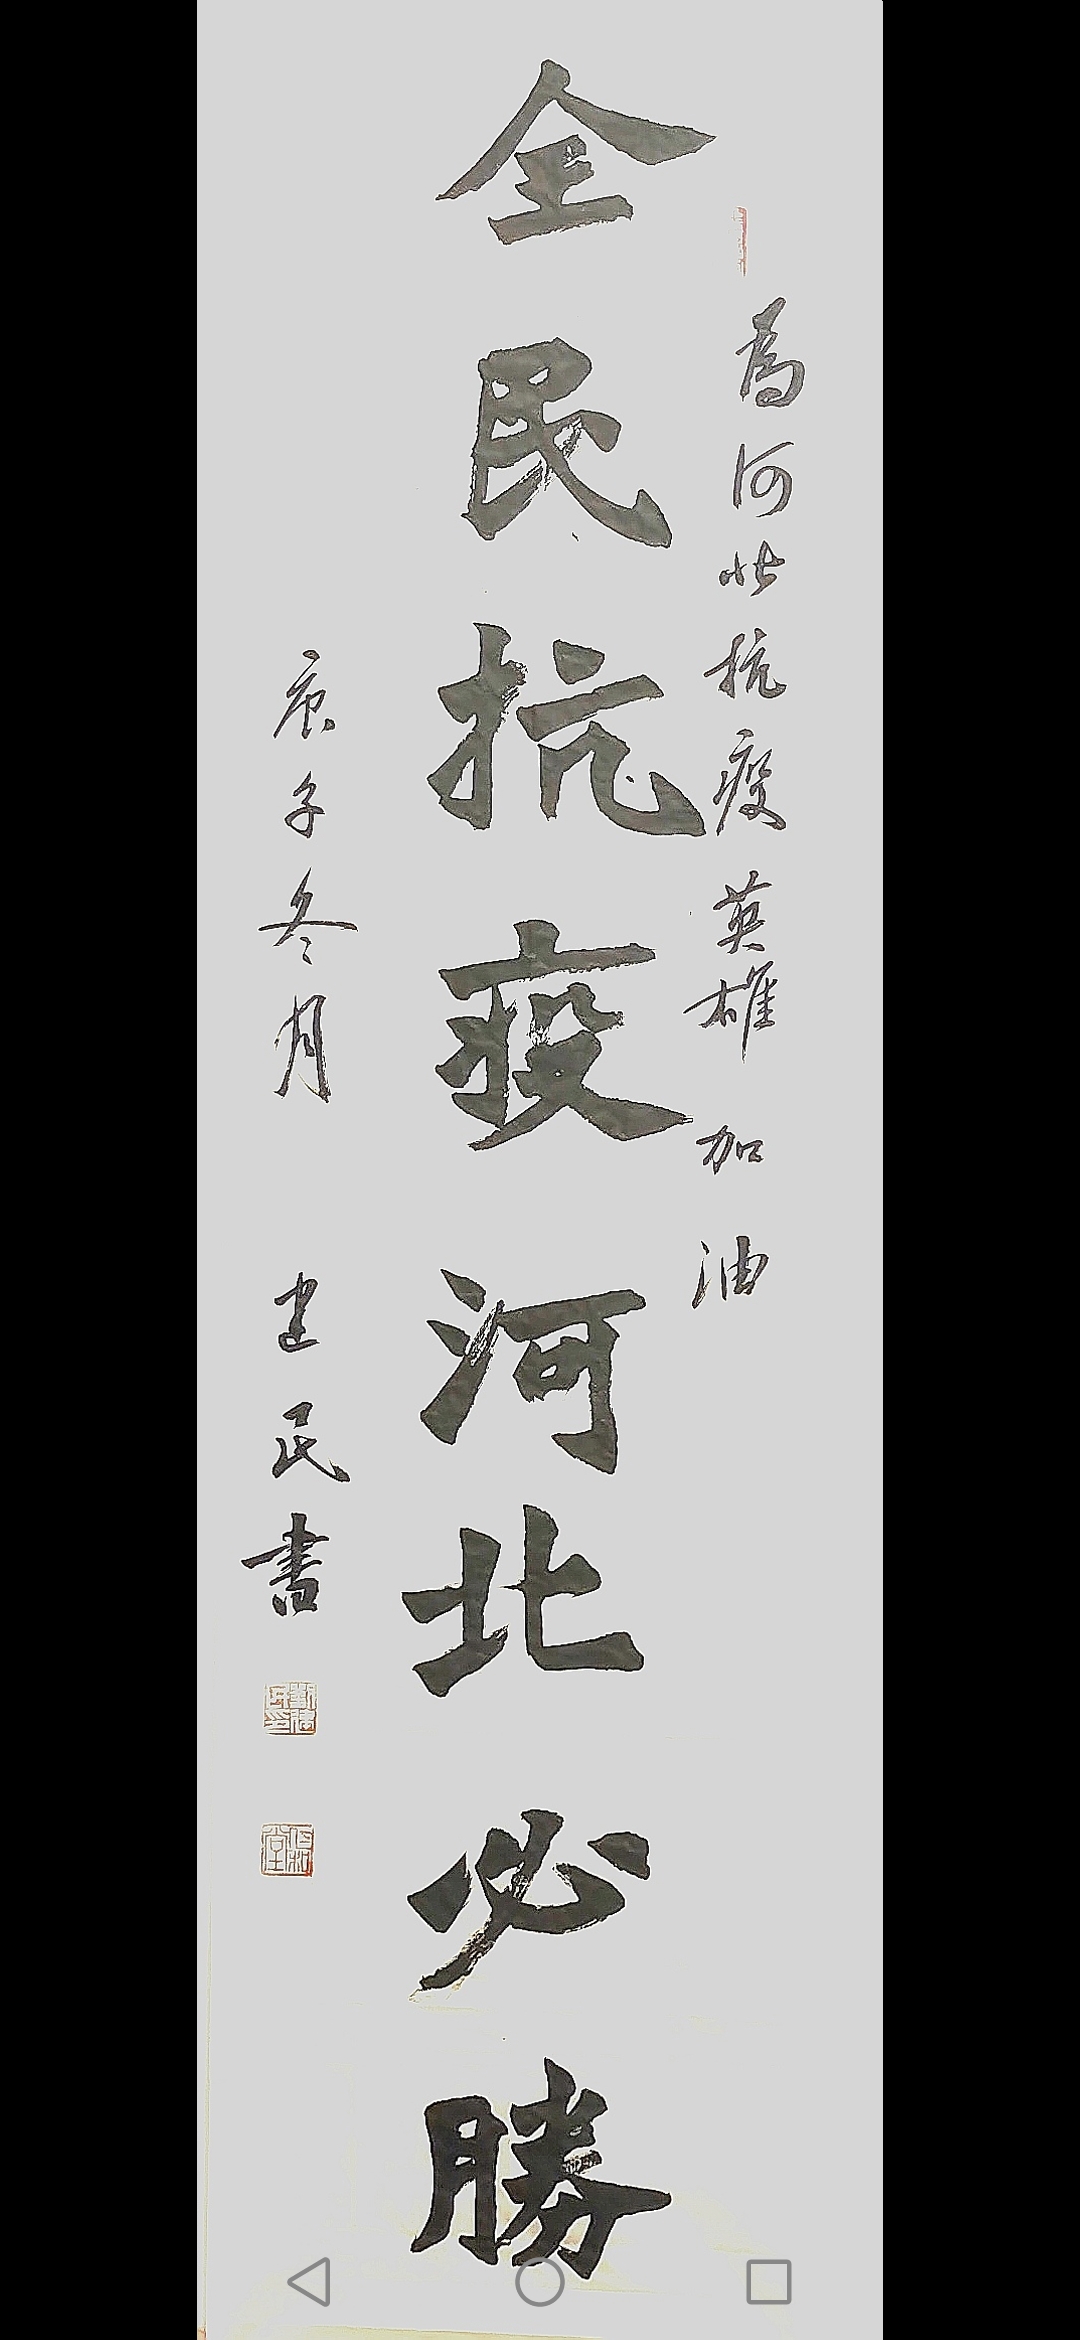 為河北抗疫英雄加油
全民抗疫河北必勝
庚子冬月 建民書